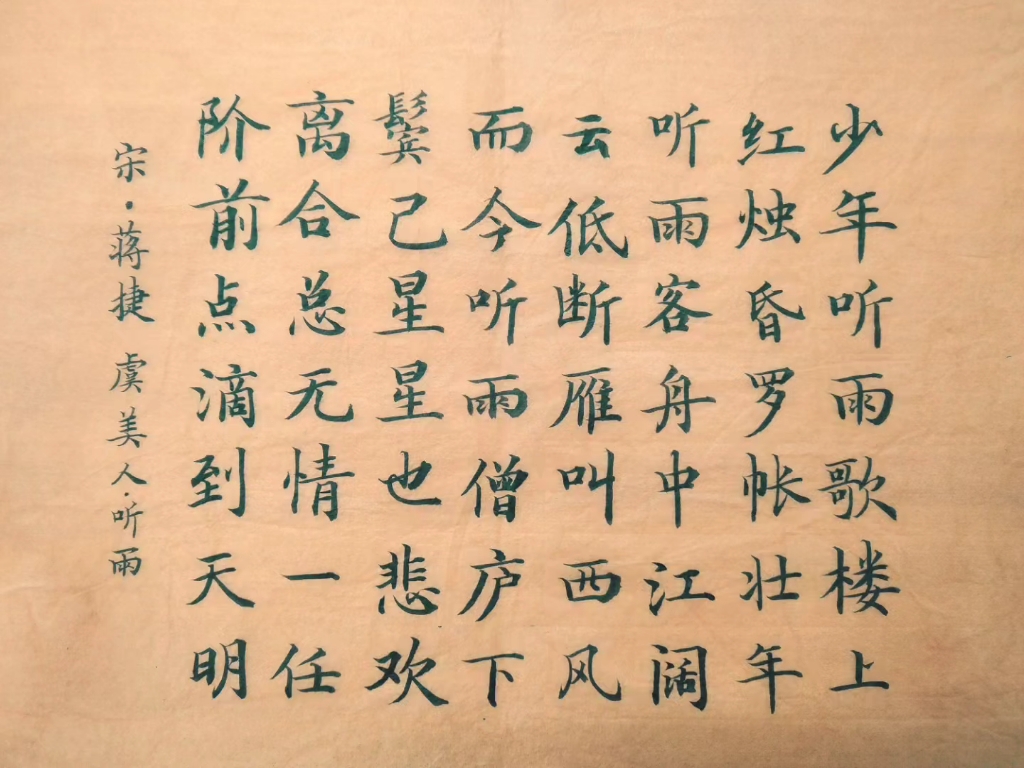 少年听雨歌楼上
红烛昏罗帐壮年
听雨客舟中江阔
云低断雁叫西风
而今听雨僧庐下
鬓已星星也悲欢
离合总无情一任
阶前点滴到天明
宋·蒋捷 虞美人·听雨